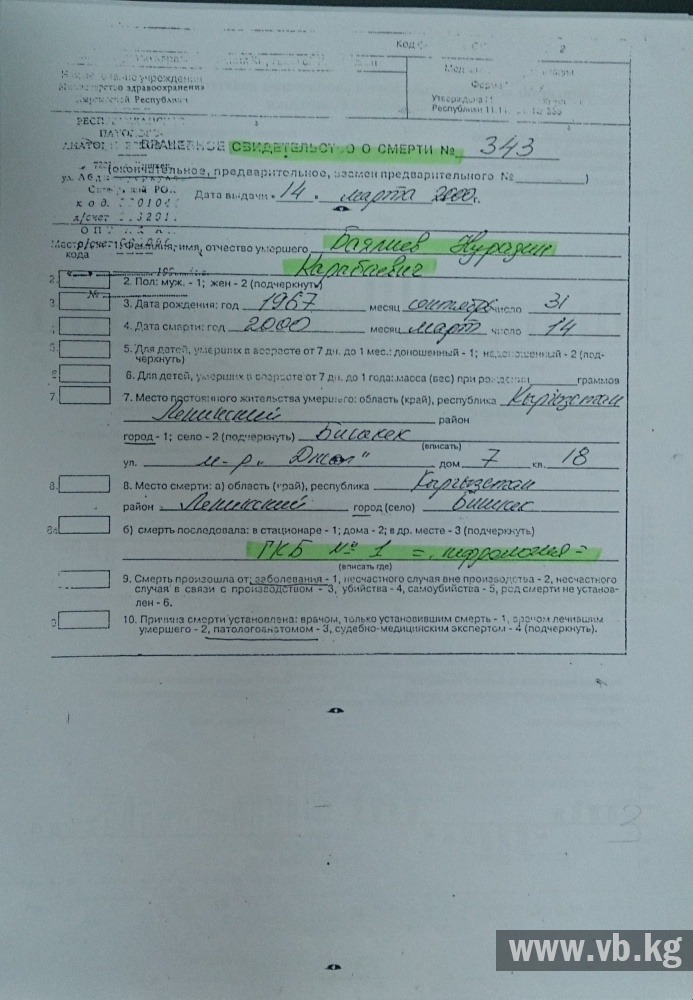 Код
2
Министерство здравоохранения
Кыргызской Республики
Форма
Утверждена
Республики 11.11.
ВРАЧЕБНОЕ СВИДЕТЕЛЬСТВО О СМЕРТИ № 343
(окончательное, предварительное, взамен предварительного № )
Дата выдачи 14 марта 2000г.
код
р/счет
Место кода
1. Фамилия, имя, отчество умершего Баялиев Нурадин
Карабаевич
2. 2. Пол: муж. - 1; жен - 2 (подчеркнуть)
№
3 3. Дата рождения: год 1967 месяц сентябрь число 31
4 4. Дата смерти: год 2000 месяц март число 14
5 5. Для детей, умерших в возрасте от 7 дн. до 1 мес.: доношенный - 1; недоношенный - 2 (под-
черкнуть)
6 6. Для детей, умерших в возрасте от 7 дн. до 1 года: масса (вес) при рождении граммов
7. 7. Место постоянного жительства умершего: область (край), республика Кыргызстан
Ленинский район
город - 1; село - 2 (подчеркнуть) Бишкек
(вписать)
ул. м-р „Джал" дом 7 кв. 18
8. 8. Место смерти: а) область (край), республика Кыргызстан
район Ленинский город (село) Бишкек
8а б) смерть последовала: в стационаре - 1; дома - 2; в др. месте - 3 (подчеркнуть)
ГКБ № 1 = нефрология =
(вписать где)
9. Смерть произошла от: заболевания - 1, несчастного случая вне производства - 2, несчастного
случая в связи с производством - 3, убийства - 4, самоубийства - 5, род смерти не установ-
лен - 6.
9 10. Причина смерти установлена: врачом, только установившим смерть - 1, врачом лечившим
умершего - 2, патологоанатомом - 3, судебно-медицинским экспертом - 4 (подчеркнуть).
3
www.vb.kg